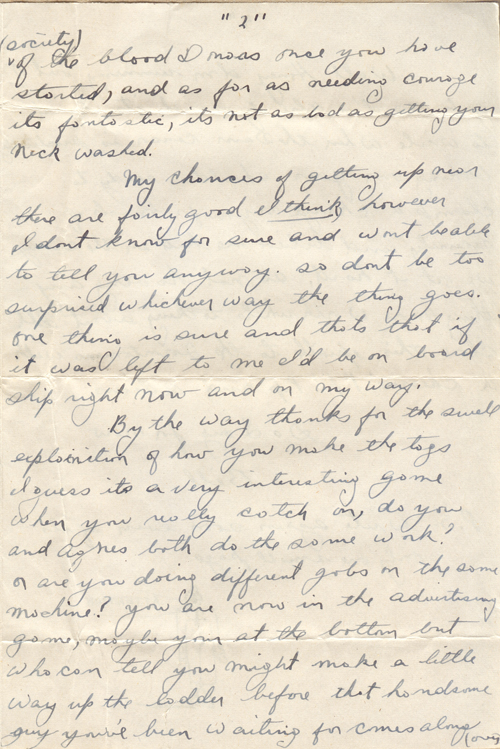 "2"
(society)
of the blood Donors once you have
started, and as for as needing courage
its fantastic, its not as bad as getting your
neck washed.
My chances of getting up near
there are fairly good I think, however
I dont know for sure and wont be able
to tell you anyway. so dont be too
surprised whichever way the thing goes.
one thing is sure and thats that if
it was left to me I'd be on board
ship right now and on my way.
By the way thanks for the swell
explaination of how you make the tags
I guess its a very interesting game
when you really catch on, do you
and agnes both do the same work?
or are you doing different gobs on the same
machine? you are now in the advertising
game, maybe your at the bottom but
who can tell you might make a little
way up the ladder before that handsome
guy you've been waiting for comes along
(over)